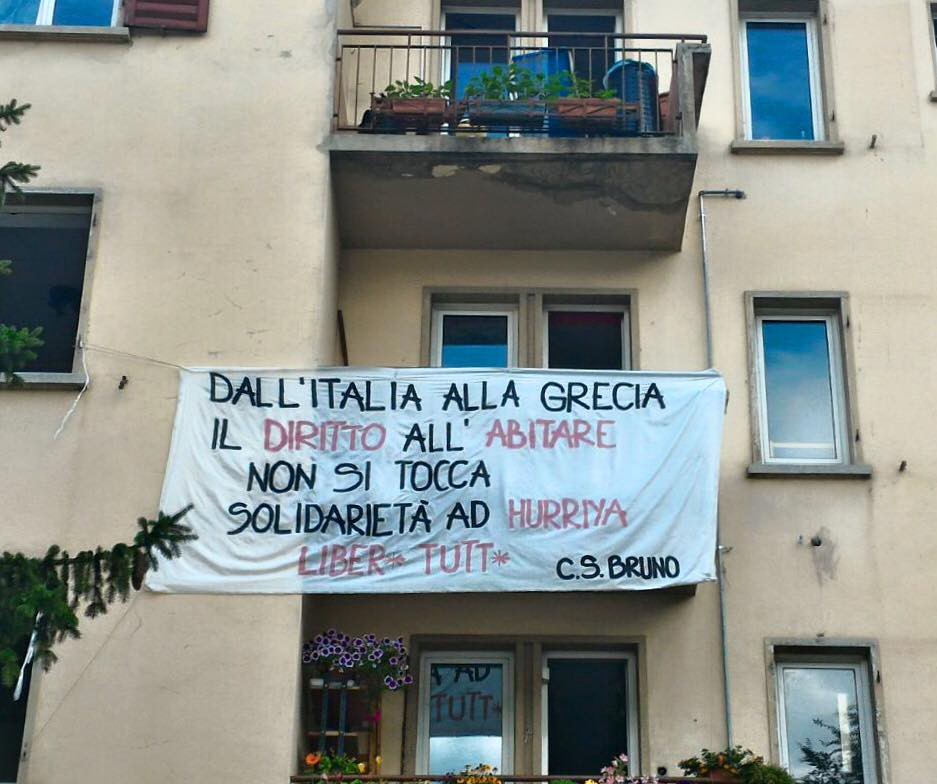 DALL'ITALIA ALLA GRECIA
IL DIRITTO ALL' ABITARE
NON SI TOCCA
SOLIDARIETÀ AD HURRIYA
LIBER* TUTT*
C.S. BRUNO
A AD
TUTT*